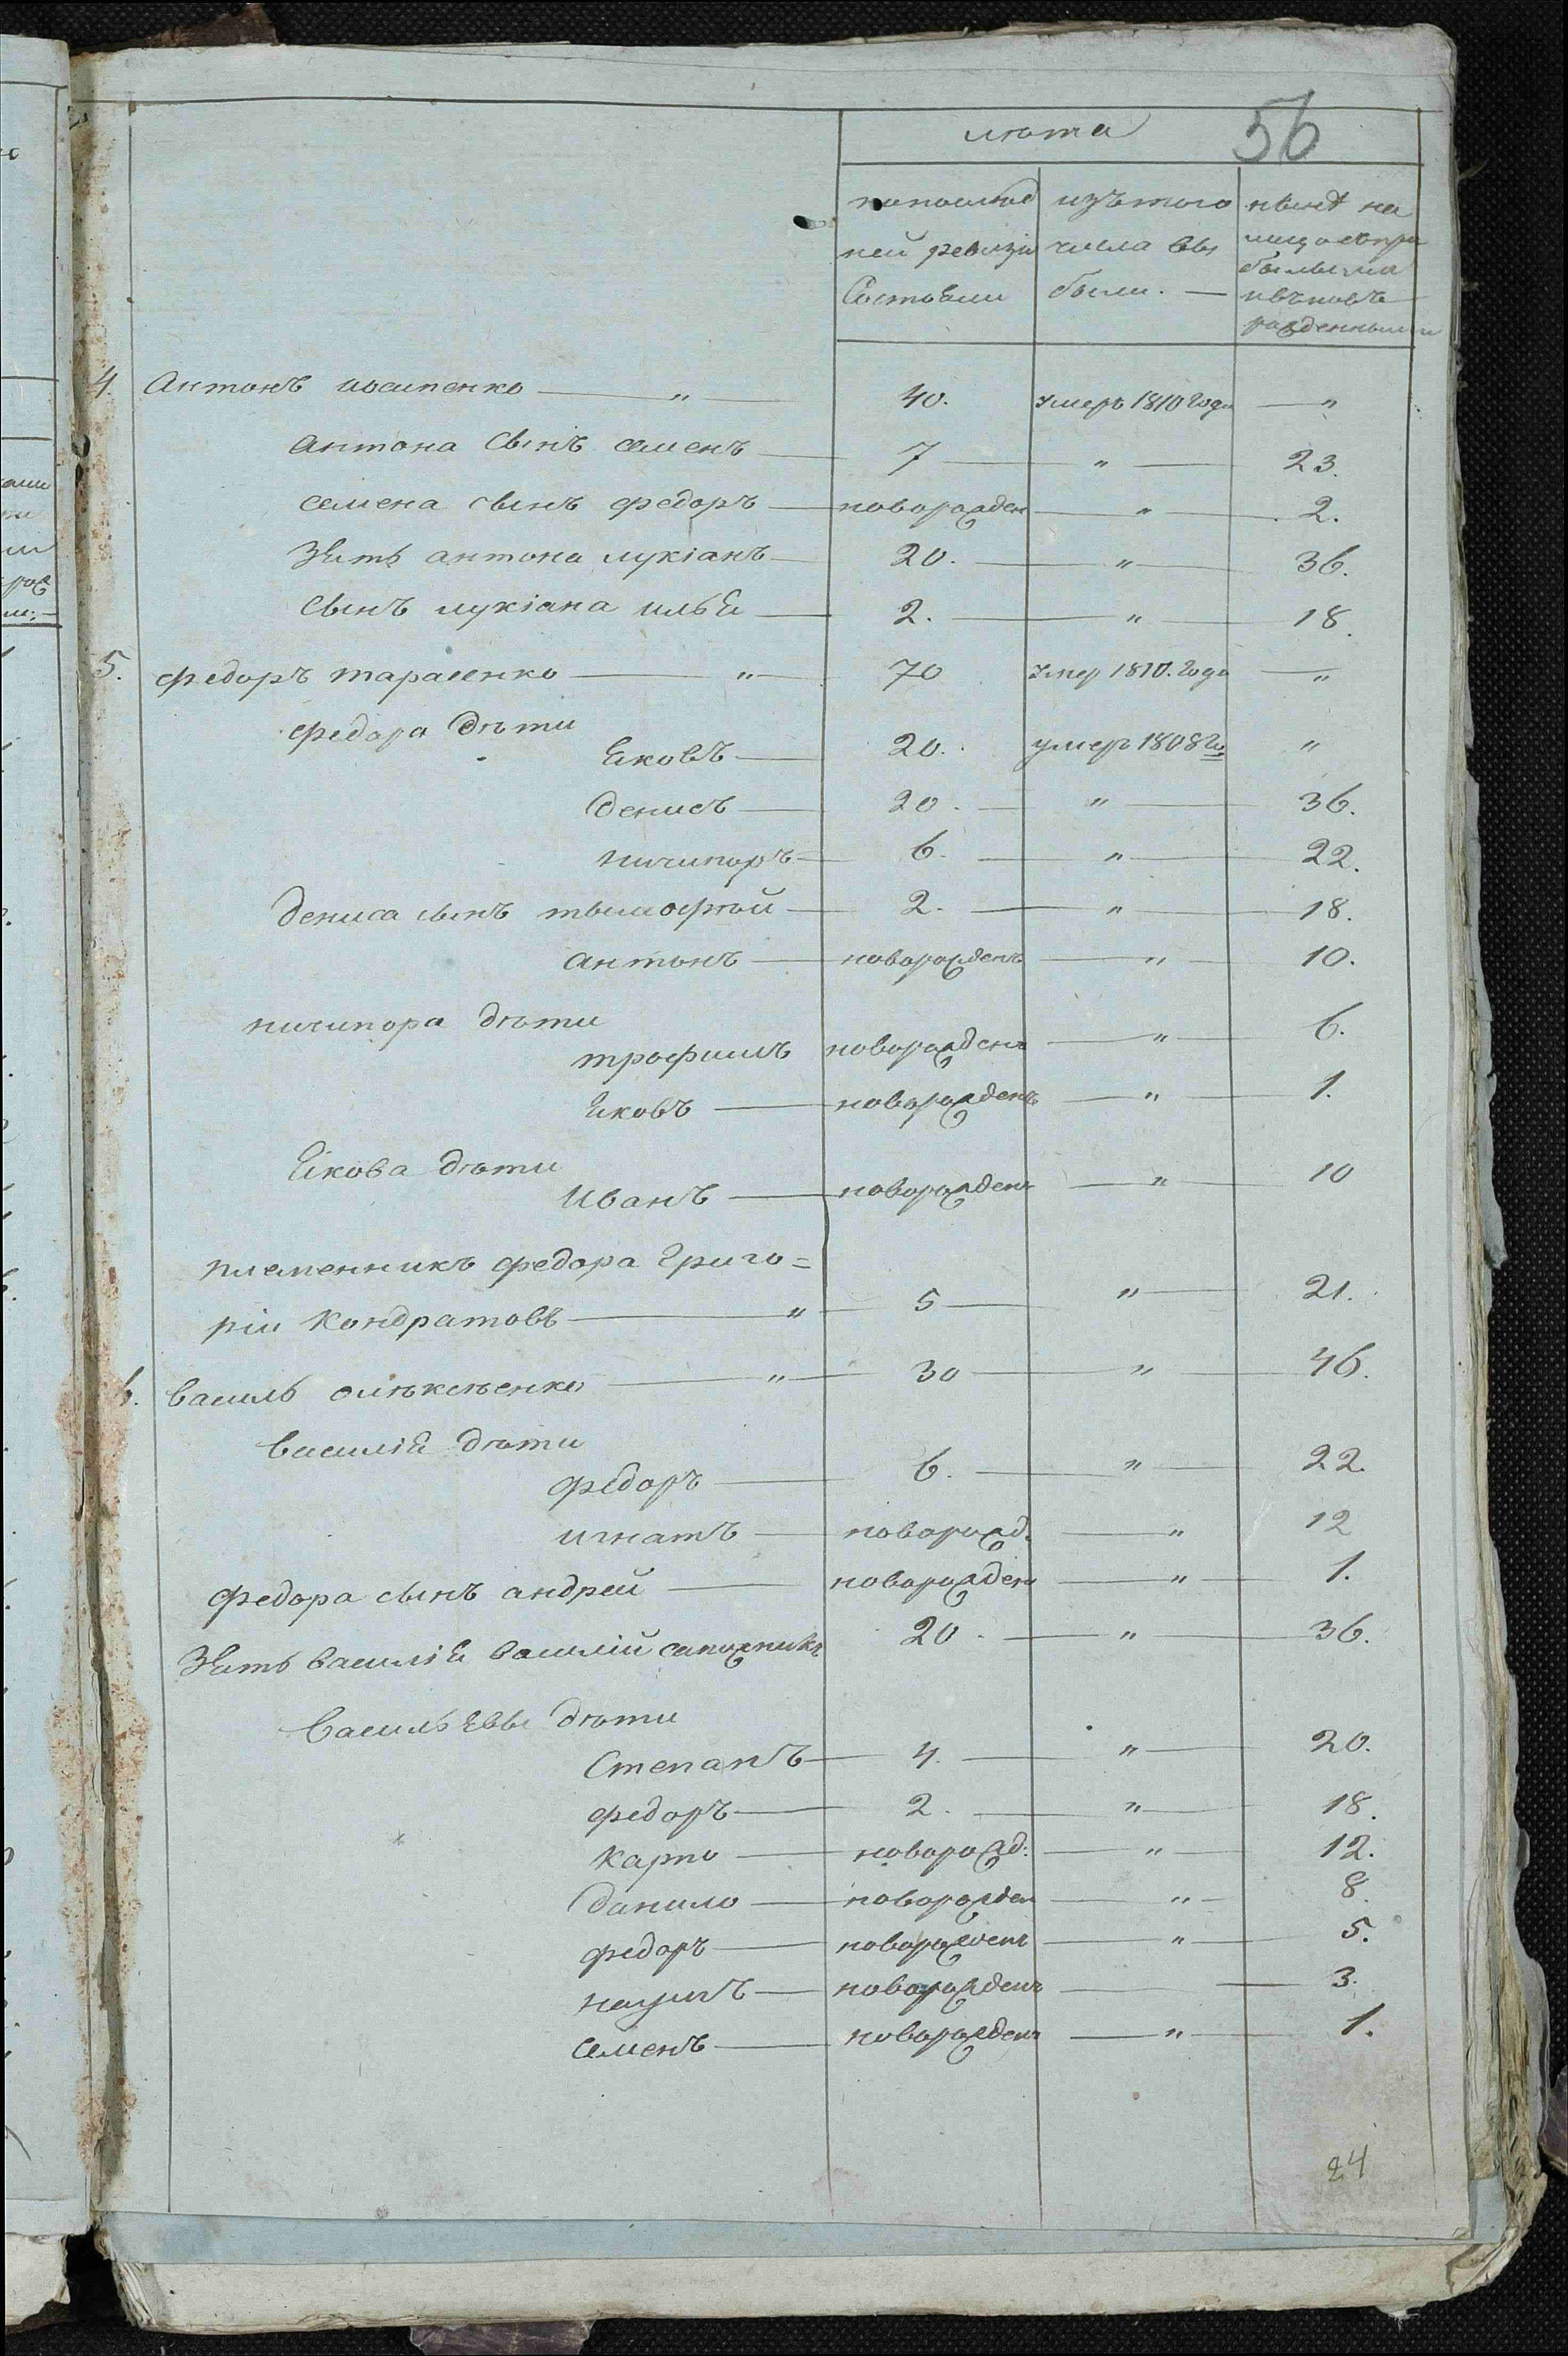 56
лѣта
попослѣд изътого нынѣ на
ней ревизіи числа вы лицо съпри
Состояли были. — былыми
ивъновь
рожденными
4. Антонъ иосипенко — „ — 40. умеръ 1810 года — „
антона сынъ семенъ — 7 — „ — 23.
семена сынъ федоръ — новорожден — „ — 2.
Зять антона лукіанъ — 20. — „ — 36.
Сынъ лукіана илья — 2. — „ — 18.
5. федоръ тарасенко — „ — 70 умер 1810. года — „
федора дѣти
яковъ — 20. умеръ 1808 го „
денисъ — 20. — „ — 36.
ничипоръ — 6. — „ — 22.
дениса сынъ тымофѣй — 2. — „ — 18.
антонъ — новорожденъ — „ — 10.
ничипора дѣти
трофимъ новорожденъ — „ — 6.
яковъ — новорожденъ — „ — 1.
якова дѣти
Иванъ — новорожденъ — „ — 10
племенникъ федора Григо=
рій Кондратовъ — „ — 5 — „ — 21.
6. василь олѣксѣенко — „ — 30 — „ — 46.
василія дѣти
федоръ — 6. — „ — 22.
игнатъ — новорожд. — „ 12
федора сынъ андрей — новорожден — „ — 1.
Зять василія василій сапожникъ 20. — „ — 36.
васильевы дѣти
Степанъ — 4. — „ — 20.
федоръ — 2. — „ — 18.
Карпо — новорожд: — „ — 12.
данило — новорожден — „ — 8.
федоръ — новорожденъ — „ — 5.
наумъ — новорожденъ — 3.
семенъ — новорожденъ — „ — 1.
24